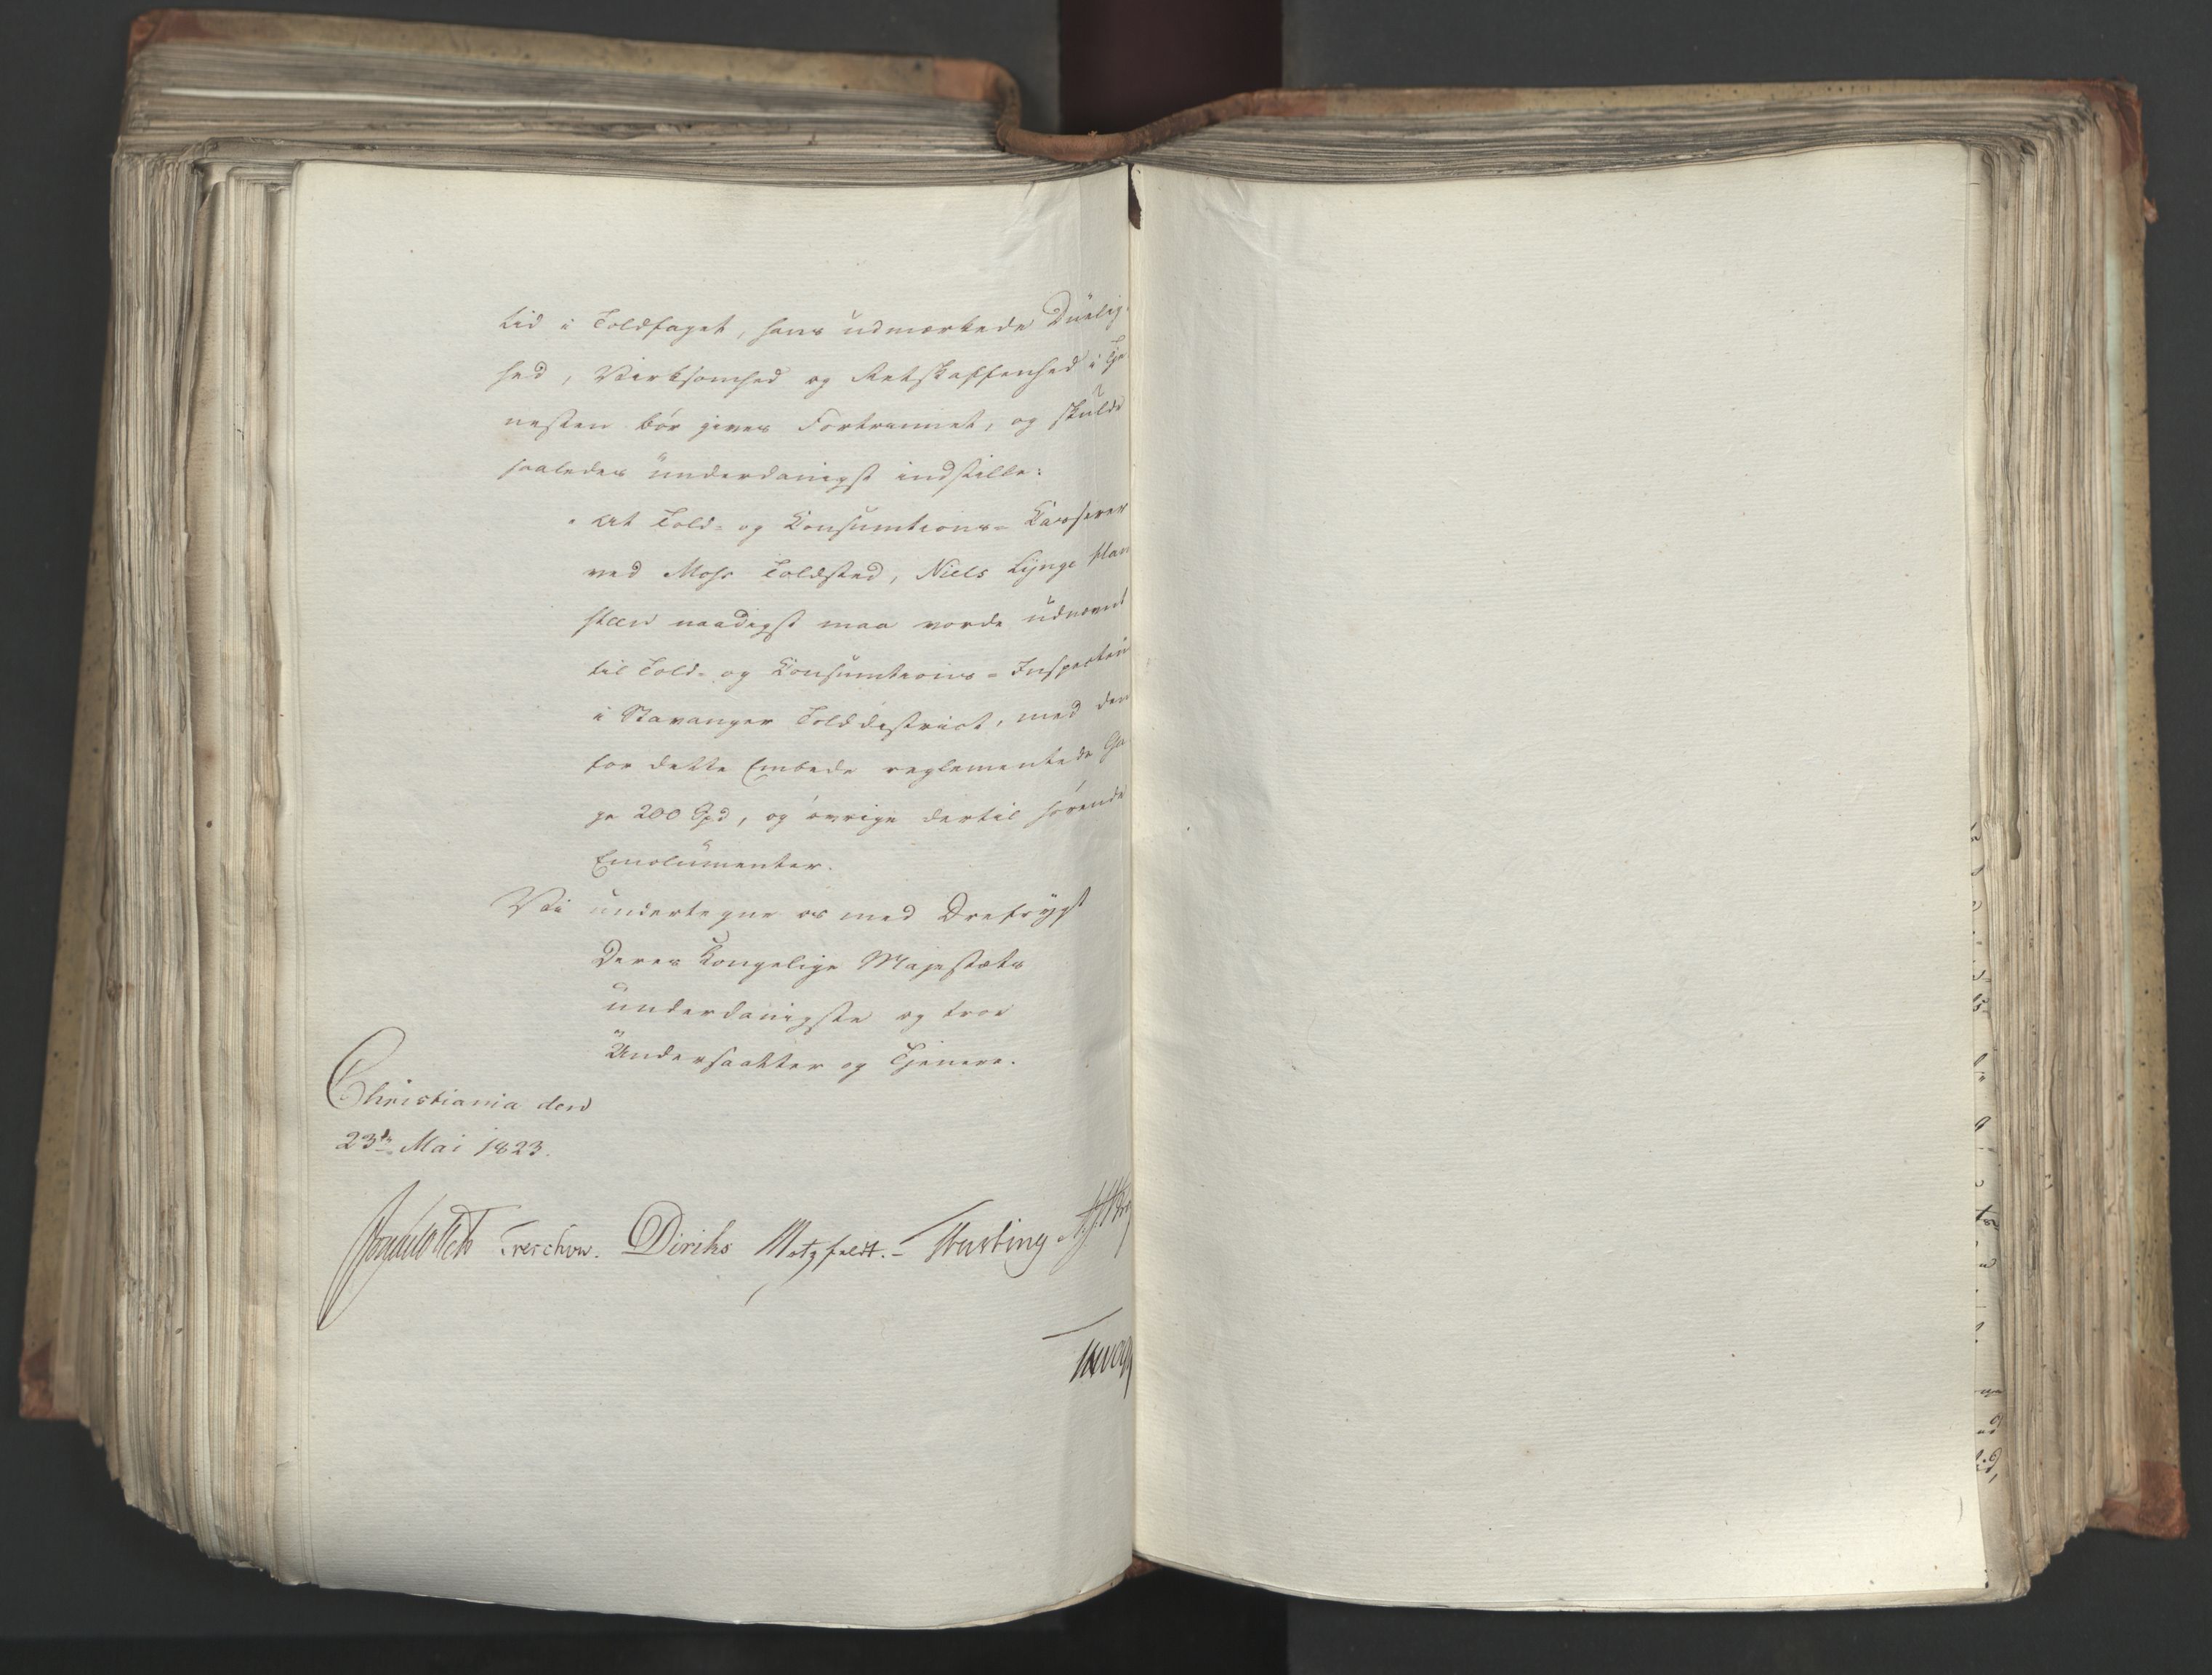 tid i Toldfaget, hans udmærkede Duelig-
hed, Virksomhed og Retskaffenhed i Tje
nesten bör gives Fortrinnet, og skulde
saaledes underdanigst indstille:
"At Told- og Consumtions- Casserer
ved Moss Toldsted, Niels Lynge
naadigst maa vorde udnævnt
til Told- og Consumtions- Inspecteur
i Stavanger Tolddistrict, med den
for dette Embede reglementede Ga
ge 200 Spd, og övrige dertil hörende
Emolumenter.
Vi undertegne os med Drefrygt
Deres Kongelige Majestæts
underdanigste og troe
Undersaatter og Tjenere.
Christiania den
23de Mai 1823.
Treschow. Diriks Motzfeldt.-